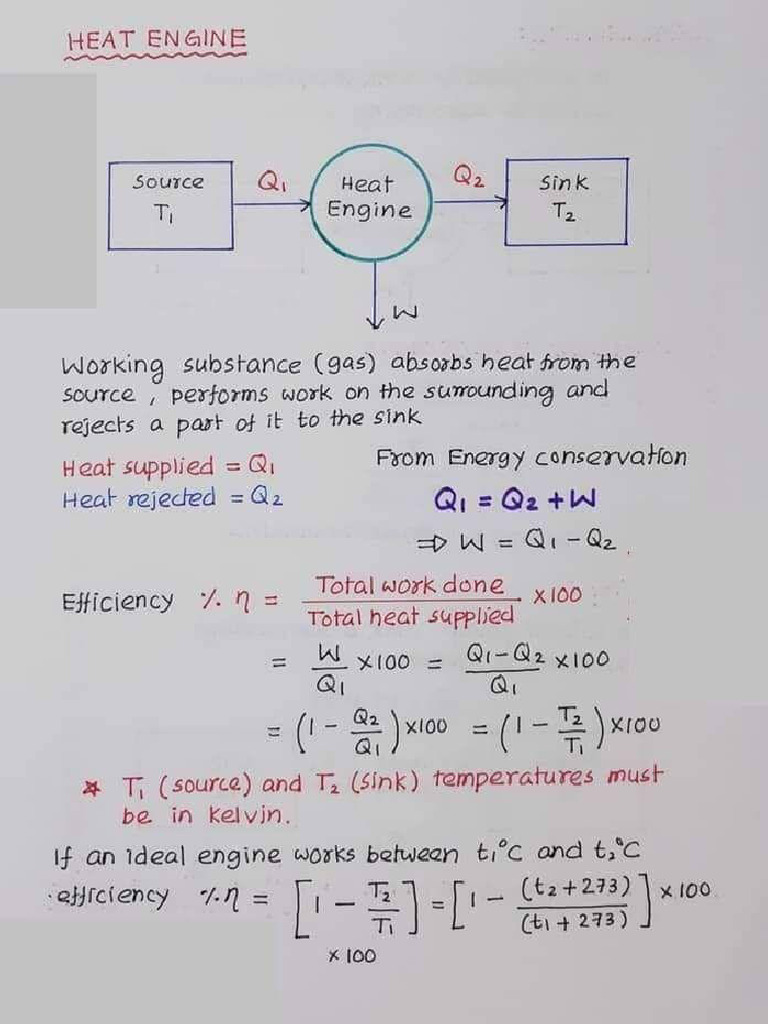 HEAT ENGINE
Source
T₁
Q₁
Heat
Engine
Q₂
Sink
T₂
W
Working substance (gas) absorbs heat from the
source, performs work on the surrounding and
rejects a part of it to the sink
Heat supplied = Q₁
From Energy conservation
Heat rejected = Q₂
Q₁ = Q₂ + W
⇒ W = Q₁ - Q₂
Efficiency % η = Total work done / Total heat supplied × 100
= W/Q₁ × 100 = (Q₁ - Q₂)/Q₁ × 100
= (1 - Q₂/Q₁) × 100 = (1 - T₂/T₁) × 100
* T₁ (source) and T₂ (sink) temperatures must
be in kelvin.
If an ideal engine works between t₁°C and t₂°C
efficiency % η = [1 - T₂/T₁] = [1 - (t₂ + 273)/(t₁ + 273)] × 100
× 100